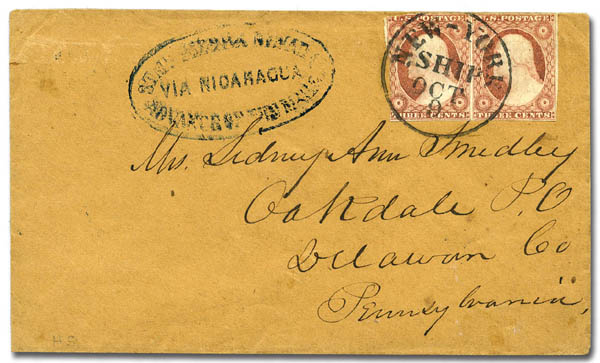 SIERRA NEVADA
VIA NICARAGUA
ADVANCE OF THE MAILS
U.S. POSTAGE
U.S. POSTAGE
THREE CENTS
THREE CENTS
NEW-YORK
SHIP
OCT
9
Mrs. Sidney Ann Smedley
Oakdale P.O
Delawar Co
Pennsylvania,